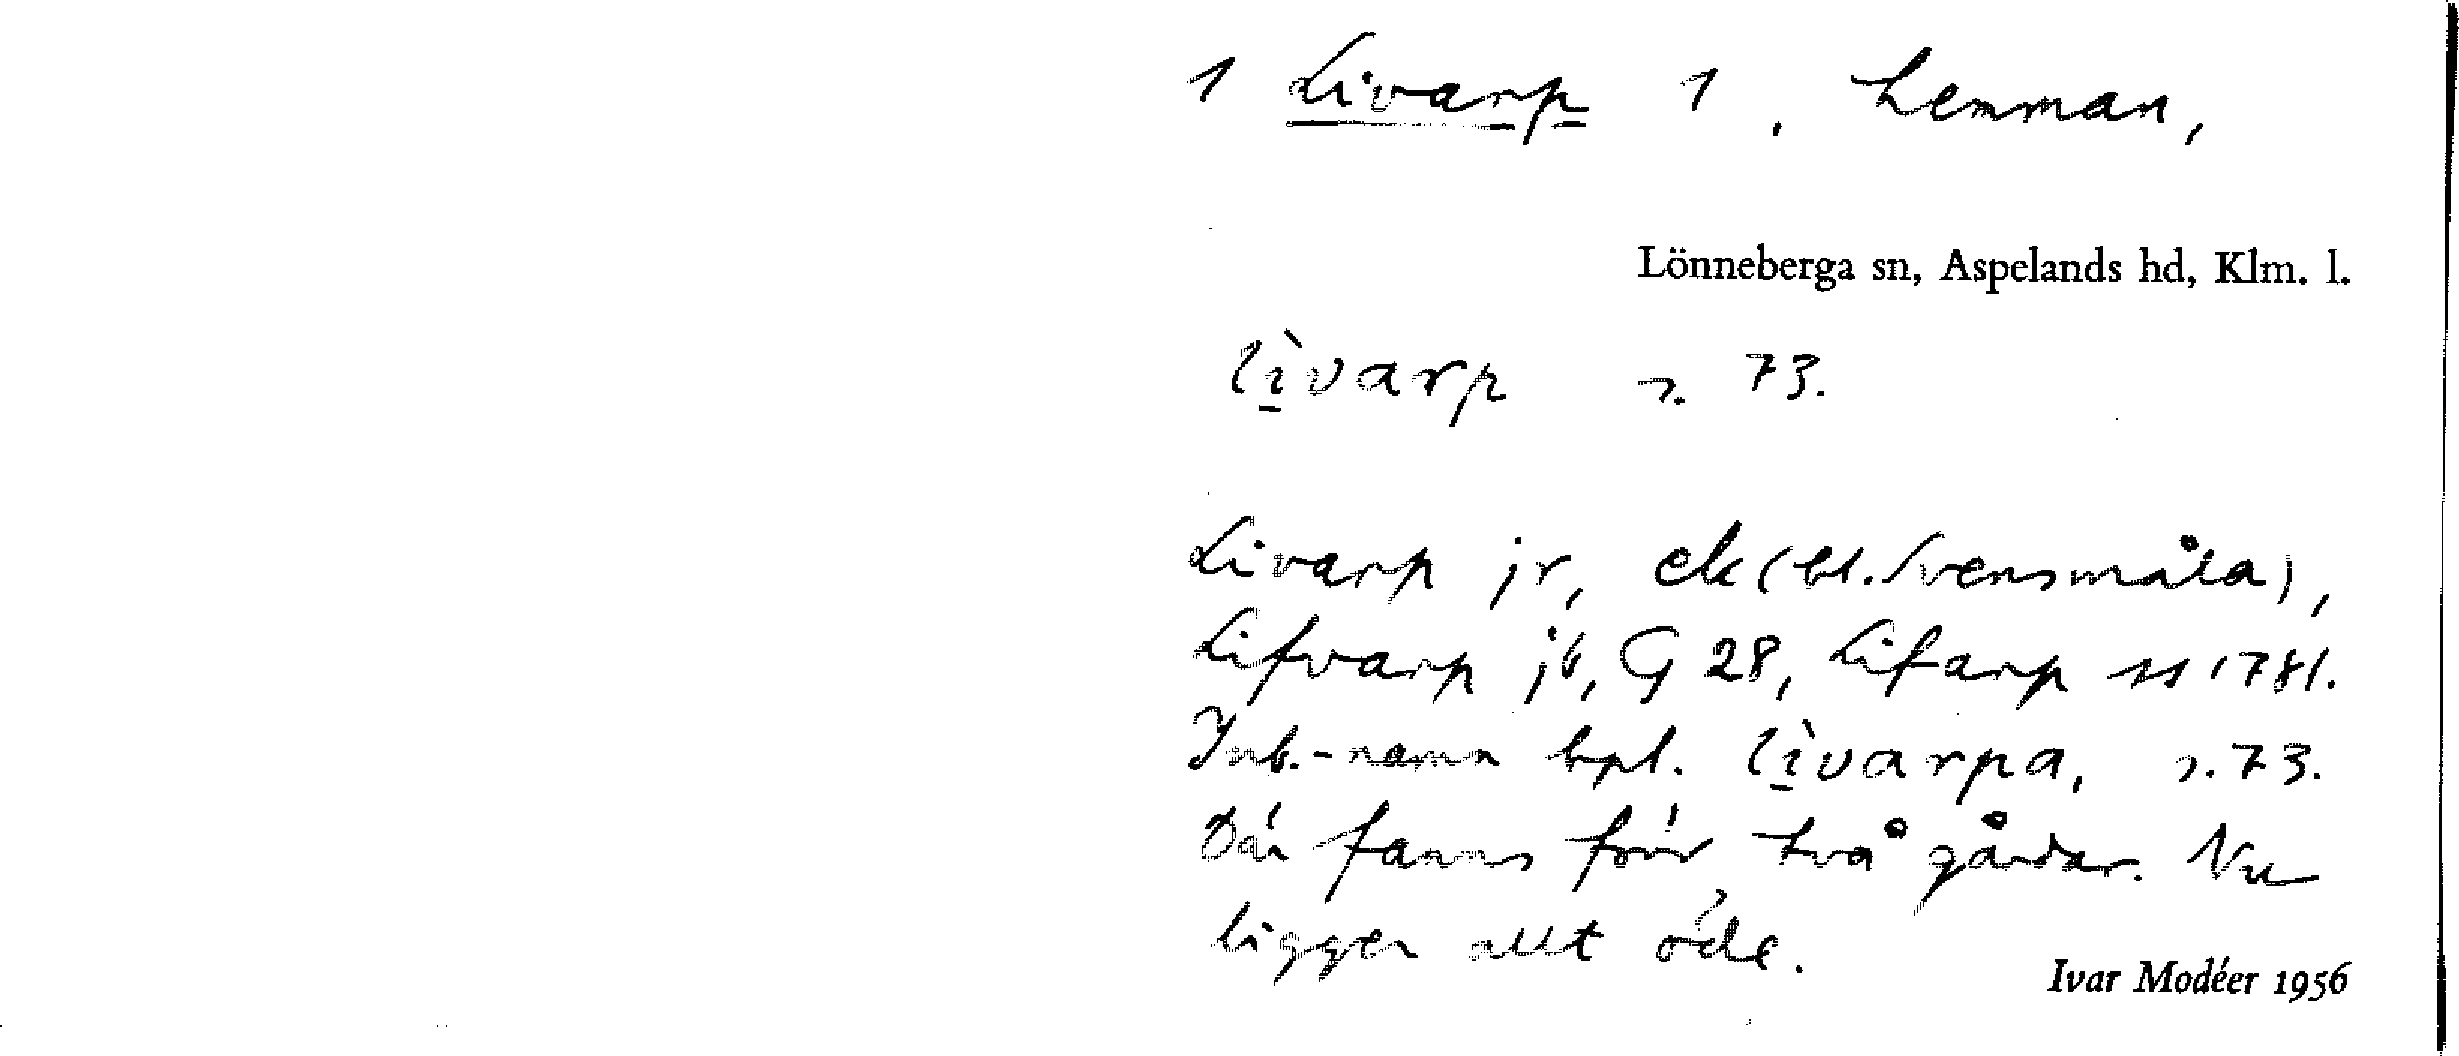 1 Livarp 1, hemman,
Lönneberga sn, Aspelands hd, Klm. l.
lìvarp s. 73.
Livarp jr, ek (bl. Svensmåla),
Lifvarp jb, G 28, Lifarp ss 1781.
Inb.-namn bpl. lìvarpa, s. 73.
Där fanns förr två gårdar. Nu
ligger allt öde.
Ivar Modéer 1956